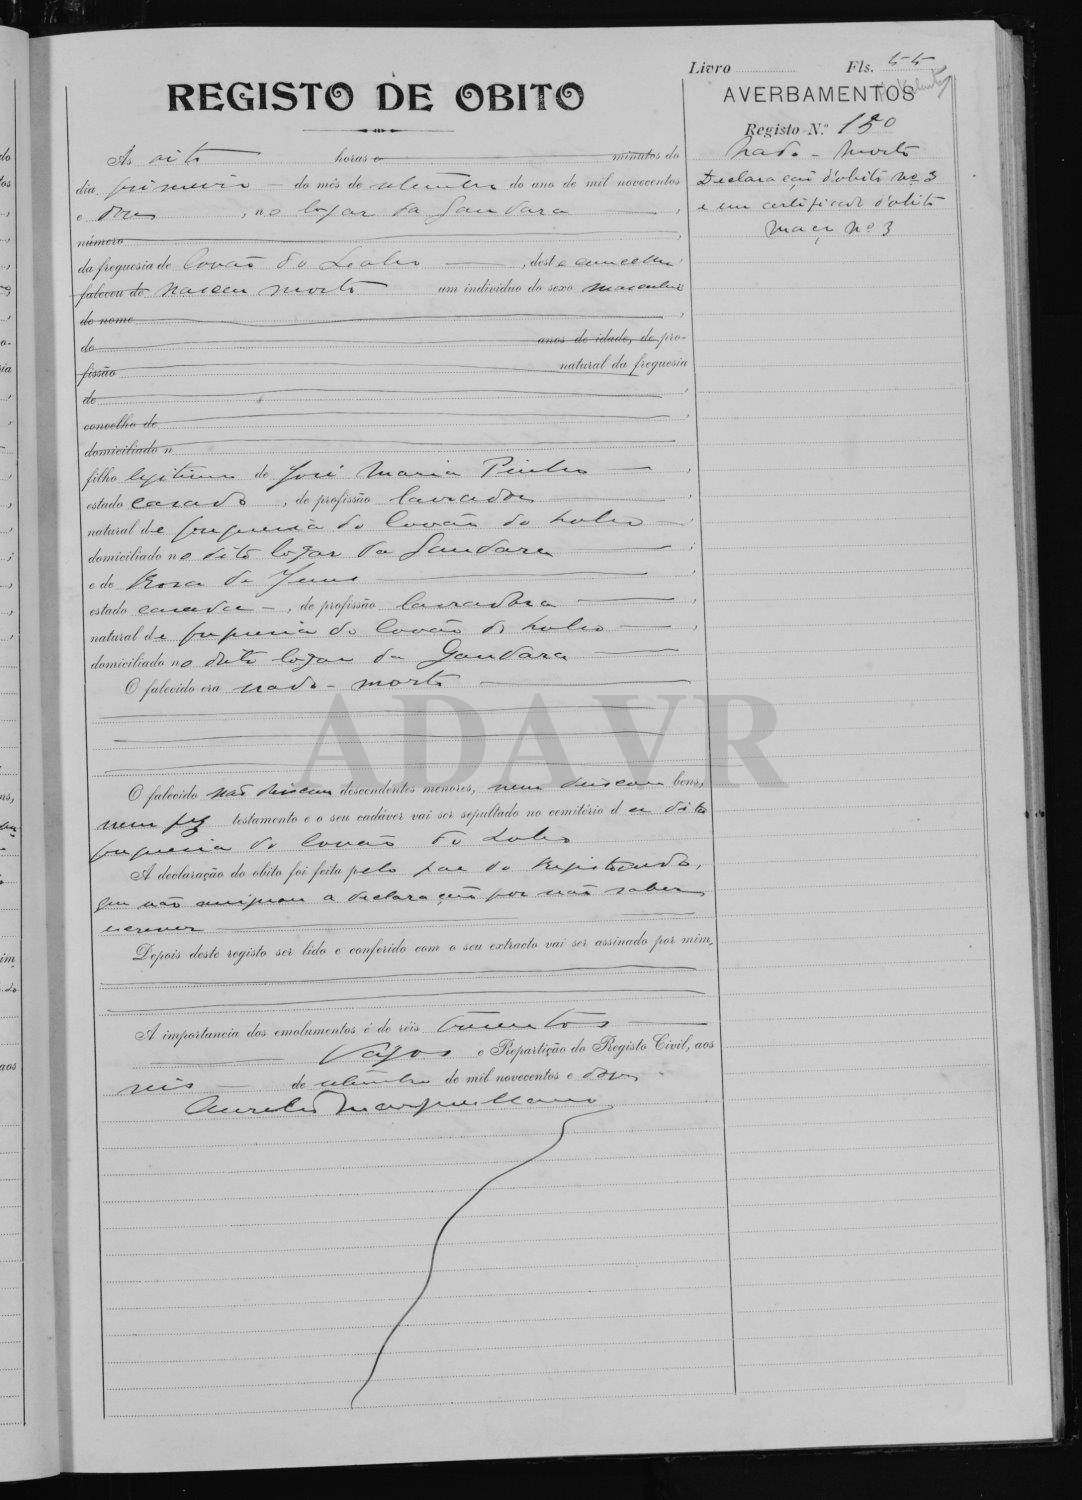 Livro Fls. 55
REGISTO DE OBITO
AVERBAMENTOS
Registo N.º 150
Nado-morto
Declaração d'obito nº 3
e um certificado d'obito
maço nº 3
Ás oito horas e minutos do
dia primeiro do mês de setembro do ano de mil novecentos
e doze, no logar da Gandara,
número
da freguesia de Covão do Lobo, deste concelho
faleceu de nasceu morto um indivíduo do sexo masculino
de nome
de anos de idade, de pro-
fissão natural da freguesia
de
concelho de
domiciliado n
filho legitimo de José Maria Pinho,
estado casado, de profissão lavrador
natural de freguesia do Covão do Lobo,
domiciliado no dito logar da Gandara;
e de Rosa de Jesus
estado casada, de profissão lavradora,
natural de freguesia do Covão do Lobo,
domiciliado no dito logar da Gandara
O falecido era nado-morto
ADAVR
O falecido não deixou descendentes menores, nem deixou bens,
nem fez testamento e o seu cadáver vai ser sepultado no cemitério d a dita
freguesia do Covão do Lobo
A declaração do obito foi feita pelo pae do registando,
que não assignou a declaração por não saber
escrever
Depois deste registo ser lido e conferido com o seu extracto vai ser assinado por mim,
A importancia dos emolumentos é de réis trezentos
Vagos e Repartição do Registo Civil, aos
seis de setembro de mil novecentos e doze.
Aurelio Marques Mano